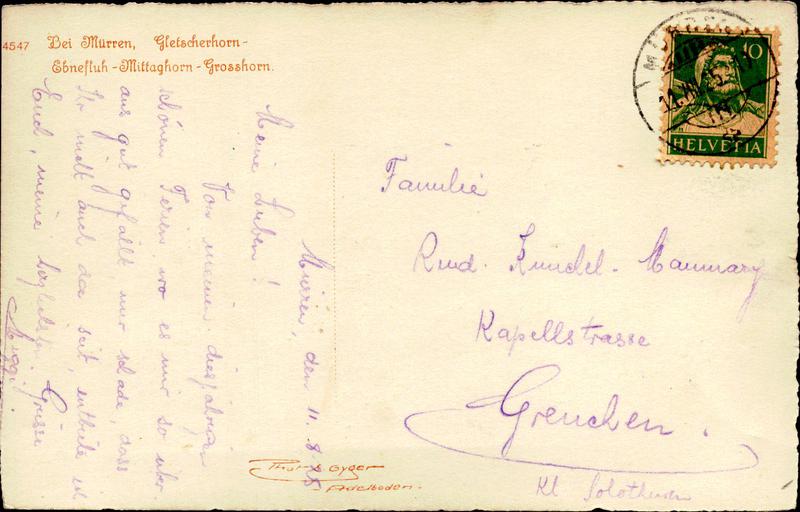 4547 Bei Mürren, Gletscherhorn-
Ebnefluh - Mittaghorn - Grosshorn.
HELVETIA
10
Mürren, den 11.8.25
Meine Lieben!
Von meinen diesjährigen
schönen Ferien, wo es mir so über-
aus gut gefällt nur schade, dass
Ihr nicht auch da seit, entbiete ich
Euch, meine herzlichsten Grüsse
Familie
Rud. Kunzel-
Kapellstrasse
Grenchen.
Kt Solothurn
Phot. Gyger
Adelboden.